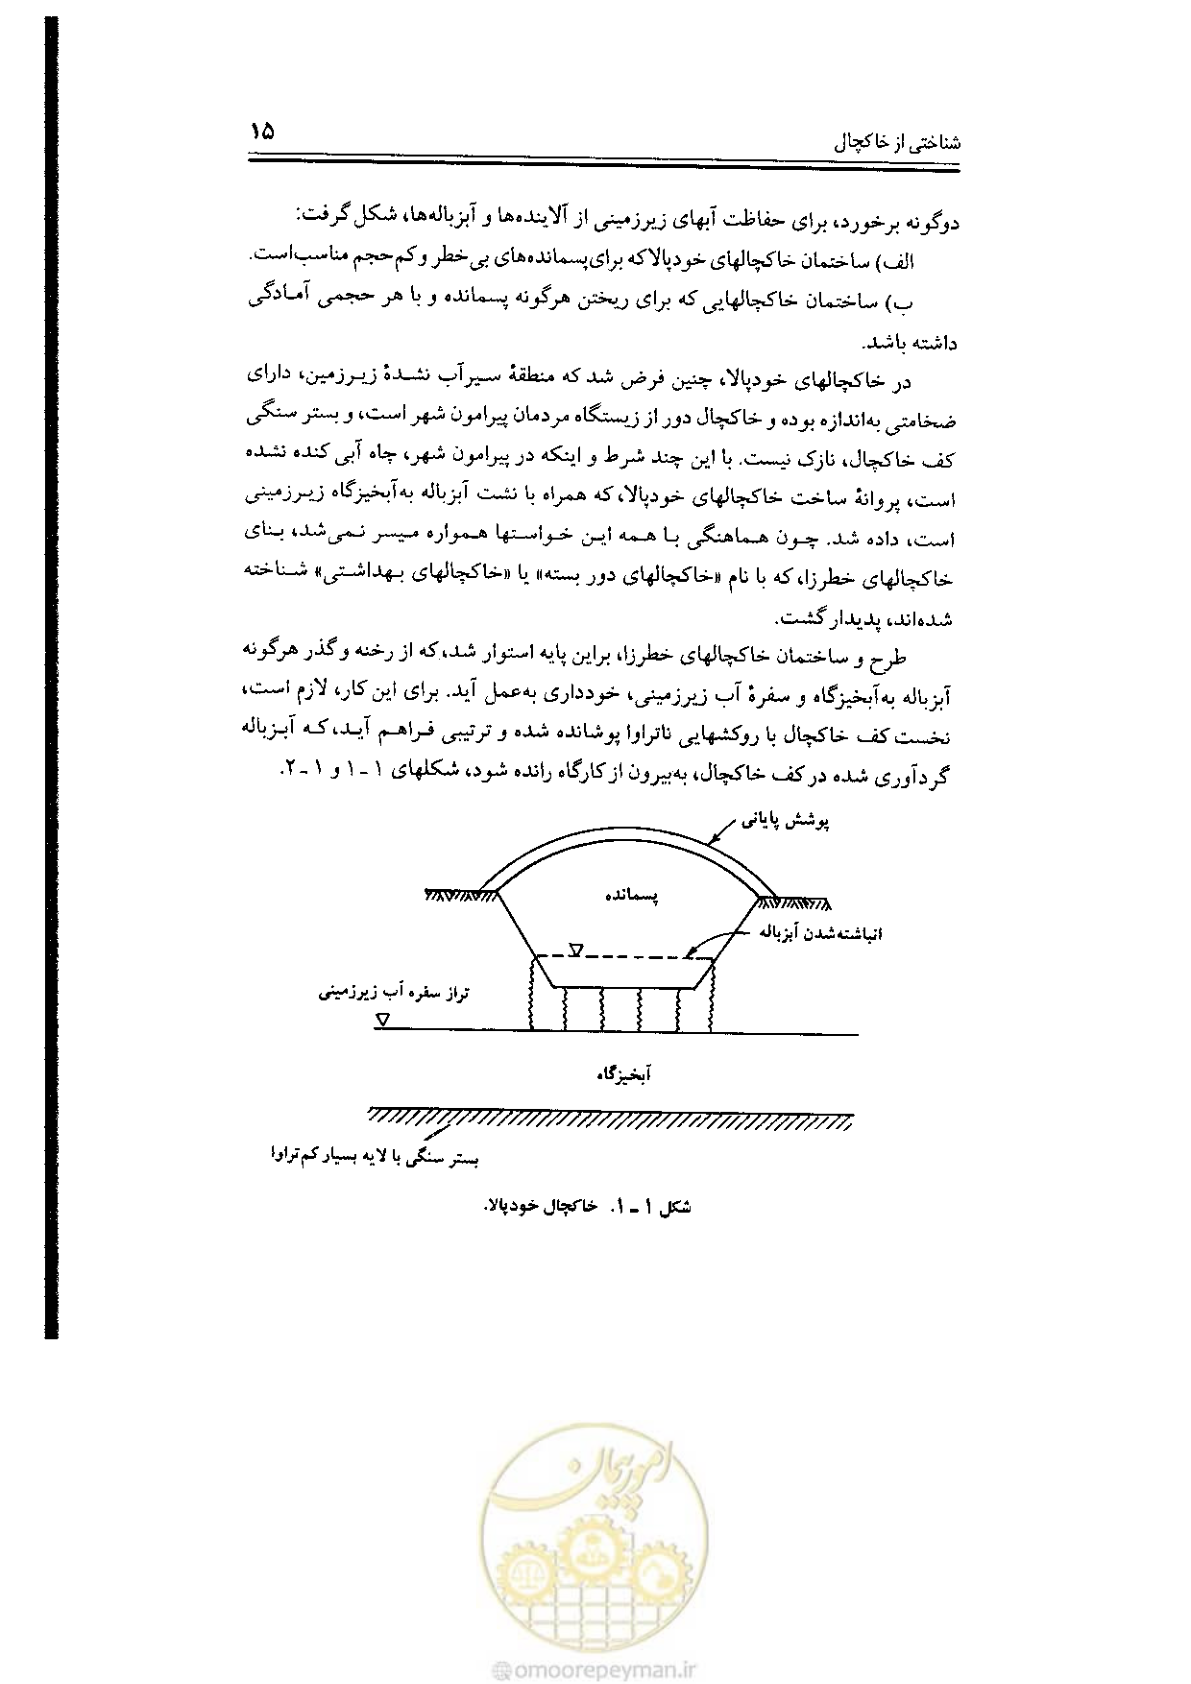 شناختی از خاکچال
۱۵
دوگونه برخورد، برای حفاظت آبهای زیرزمینی از آلاینده‌ها و آبزباله‌ها، شکل گرفت:
الف) ساختمان خاکچالهای خودپالا که برای پسمانده‌های بی‌خطر و کم‌حجم مناسب است.
ب) ساختمان خاکچالهایی که برای ریختن هرگونه پسمانده و با هر حجمی آمادگی
داشته باشد.
در خاکچالهای خودپالا، چنین فرض شد که منطقهٔ سیرآب نشدهٔ زیرزمین، دارای
ضخامتی به‌اندازه بوده و خاکچال دور از زیستگاه مردمان پیرامون شهر است، و بستر سنگی
کف خاکچال، نازک نیست. با این چند شرط و اینکه در پیرامون شهر، چاه آبی کنده نشده
است، پروانهٔ ساخت خاکچالهای خودپالا، که همراه با نشت آبزباله به‌آبخیزگاه زیرزمینی
است، داده شد. چون هماهنگی با همه این خواستها همواره میسر نمی‌شد، بنای
خاکچالهای خطرزا، که با نام «خاکچالهای دور بسته» یا «خاکچالهای بهداشتی» شناخته
شده‌اند، پدیدار گشت.
طرح و ساختمان خاکچالهای خطرزا، براین پایه استوار شد، که از رخنه و گذر هرگونه
آبزباله به‌آبخیزگاه و سفرهٔ آب زیرزمینی، خودداری به‌عمل آید. برای این کار، لازم است،
نخست کف خاکچال با روکشهایی ناتراوا پوشانده شده و ترتیبی فراهم آید، که آبزباله
گردآوری شده در کف خاکچال، به‌بیرون از کارگاه رانده شود، شکلهای ۱ ـ ۱ و ۱ ـ ۲.
پوشش پایانی
پسمانده
انباشته‌شدن آبزباله
تراز سفره آب زیرزمینی
آبخیزگاه
بستر سنگی با لایه بسیار کم‌تراوا
شکل ۱ ـ ۱. خاکچال خودپالا.
امور پیمان
@omoorepeyman.ir